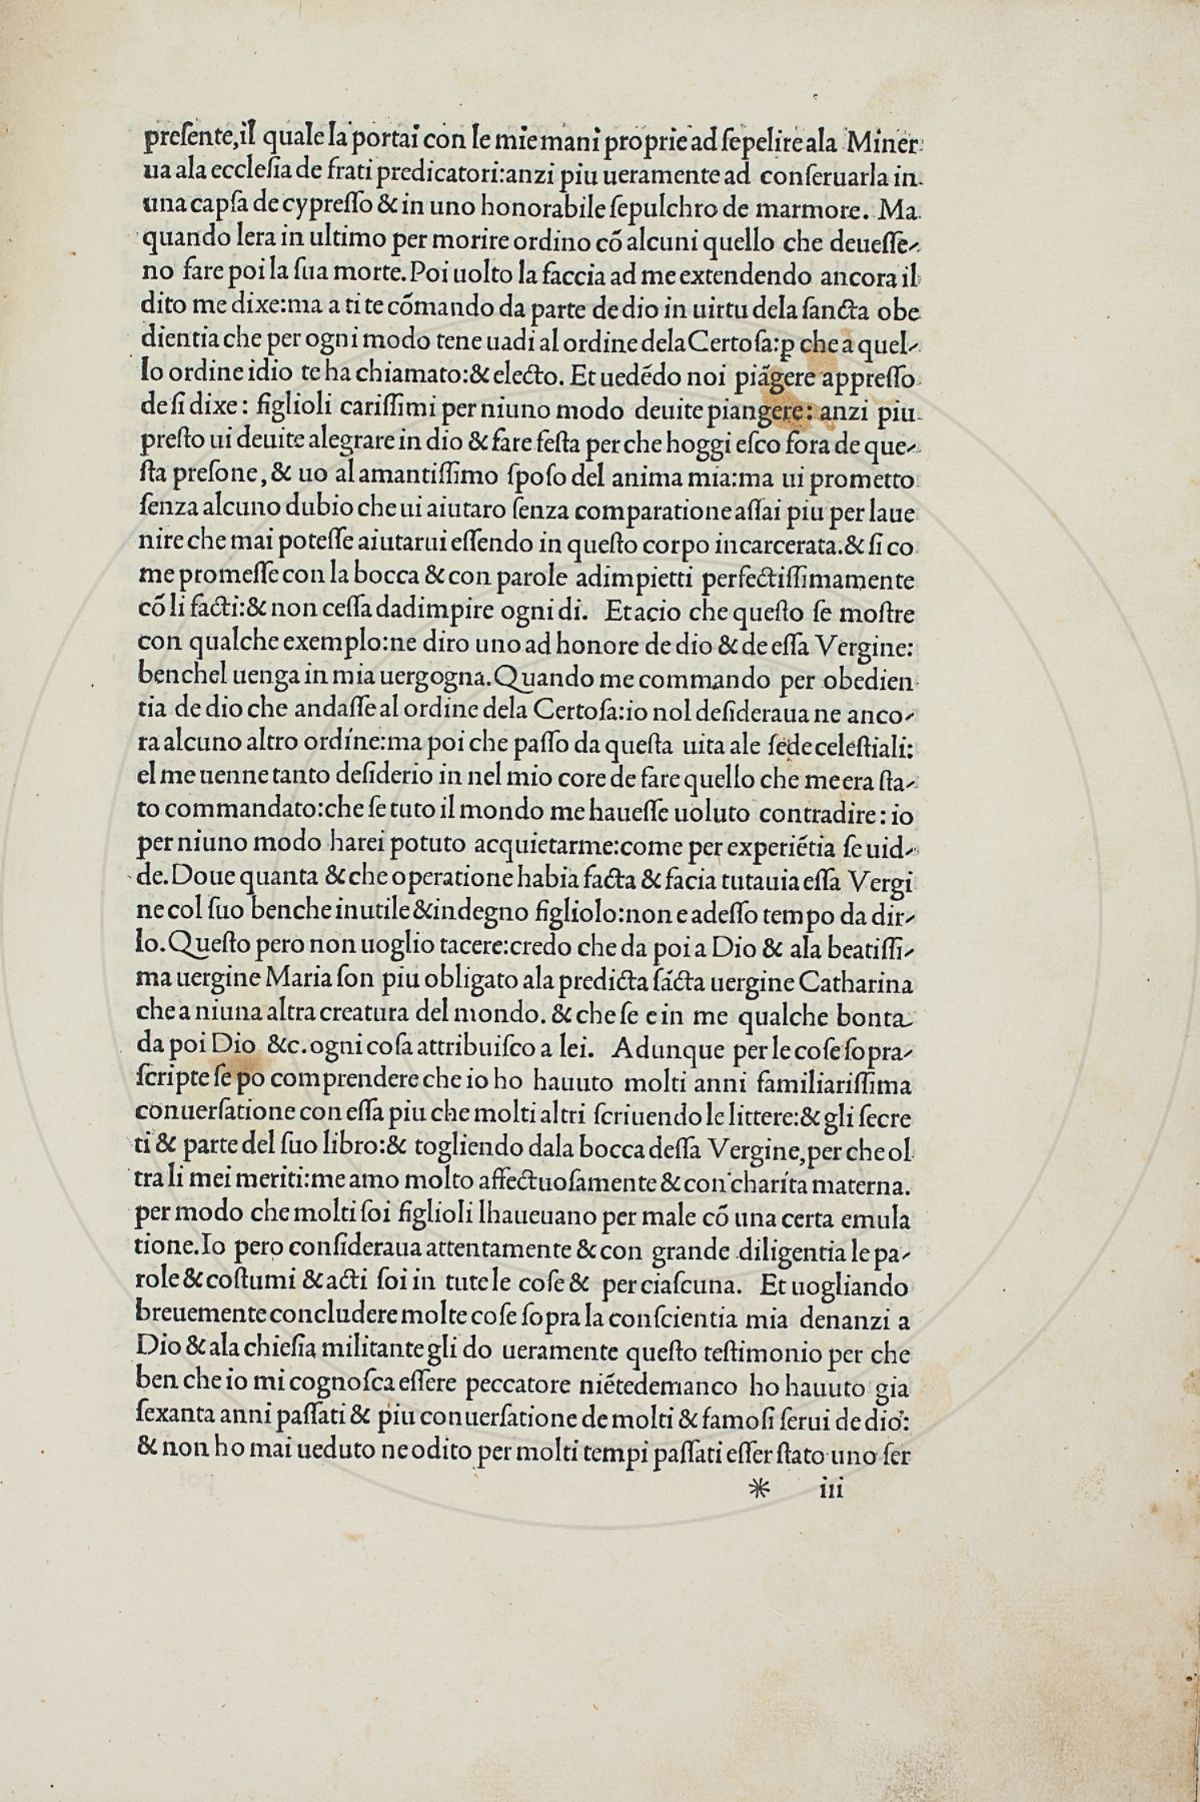 preſente,il quale la portai con le mie mani proprie ad ſepelire ala Miner
ua ala eccleſia de frati predicatori:anzi piu ueramente ad conſeruarla in
una capſa de cypreſſo & in uno honorabile ſepulchro de marmore. Ma
quando lera in ultimo per morire ordino cõ alcuni quello che deueſſe-
no fare poi la ſua morte. Poi uolto la faccia ad me extendendo ancora il
dito me dixe:ma a ti te cõmando da parte de dio in uirtu dela ſancta obe
dientia che per ogni modo tene uadi al ordine dela Certoſa:ꝑ che a quel-
lo ordine idio te ha chiamato:& electo. Et uedẽdo noi piãgere appreſſo
de ſi dixe: figlioli cariſſimi per niuno modo deuite piangere: anzi piu
preſto ui deuite alegrare in dio & fare feſta per che hoggi eſco fora de que-
ſta preſone, & uo al amantiſſimo ſpoſo del anima mia:ma ui prometto
ſenza alcuno dubio che ui aiutaro ſenza comparatione aſſai piu per laue
nire che mai poteſſe aiutarui eſſendo in queſto corpo incarcerata.& ſi co
me promeſſe con la bocca & con parole adimpietti perfectiſſimamente
cõ li facti:& non ceſſa dadimpire ogni di. Et acio che queſto ſe moſtre
con qualche exemplo:ne diro uno ad honore de dio & de eſſa Vergine:
benchel uenga in mia uergogna. Quando me commando per obedien
tia de dio che andaſſe al ordine dela Certoſa:io nol deſideraua ne anco-
ra alcuno altro ordíne:ma poi che paſſo da queſta uita ale ſede celeſtiali:
el me uenne tanto deſiderio in nel mio core de fare quello che me era ſta-
to commandato:che ſe tuto il mondo me haueſſe uoluto contradire: io
per niuno modo harei potuto acquietarme:come per experiẽtia ſe uid-
de. Doue quanta & che operatione habia facta & facia tutauia eſſa Vergi
ne col ſuo benche inutile & indegno figliolo:non e adeſſo tempo da dir-
lo. Queſto pero non uoglio tacere:credo che da poi a Dio & ala beatiſſi-
ma uergine Maria ſon piu obligato ala predicta ſãcta uergine Catharina
che a niuna altra creatura del mondo. & che ſe e in me qualche bonta
da poi Dio &c. ogni coſa attribuiſco a lei. Adunque per le coſe ſopra-
ſcripte ſe po comprendere che io ho hauuto molti anni familiariſſima
conuerſatione con eſſa piu che molti altri ſcriuendo le littere:& gli ſecre
ti & parte del ſuo libro:& togliendo dala bocca deſſa Vergine,per che ol
tra li mei meriti:me amo molto affectuoſamente & con charíta materna.
per modo che molti ſoi figlioli lhaueuano per male cõ una certa emula
tione. Io pero conſideraua attentamente & con grande diligentia le pa-
role & coſtumi & acti ſoi in tute le coſe & per ciaſcuna. Et uogliando
breuemente concludere molte coſe ſopra la conſcientia mia denanzi a
Dio & ala chieſia militante gli do ueramente queſto teſtimonio per che
ben che io mi cognoſca eſſere peccatore niẽtedemanco ho hauuto gia
ſexanta anni paſſati & piu conuerſatione de molti & famoſi ſerui de dio:
& non ho mai ueduto ne odito per molti tempi paſſati eſſer ſtato uno ſer
* iii